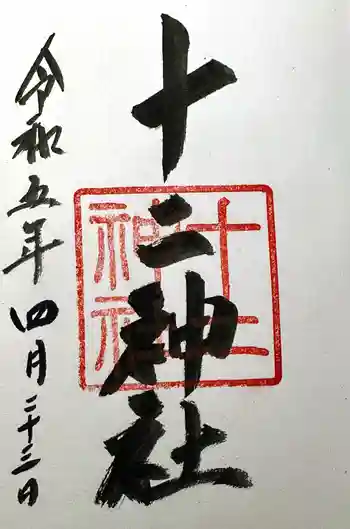 十二神社
十二
神社
令和五年四月二十三日